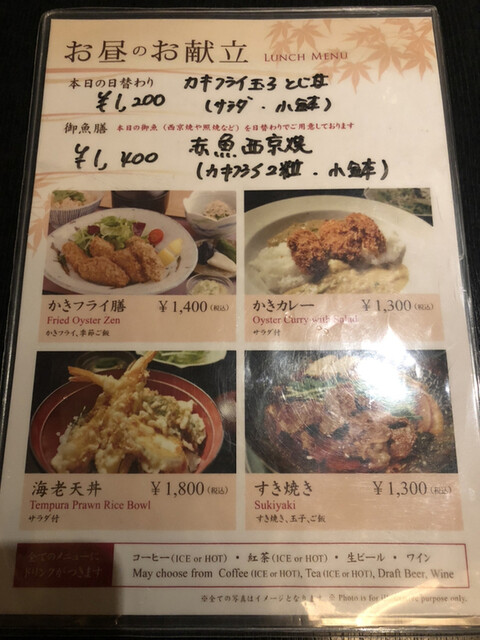 お昼のお献立 LUNCH MENU
本日の日替わり カキフライ玉子とじ丼
¥1,200 (サラダ・小鉢)
御魚膳 本日の御魚（西京焼や照焼など）を日替わりでご用意しております
¥1,400 赤魚西京焼
(カキフライ2粒・小鉢)
かきフライ膳 ¥1,400(税込)
Fried Oyster Zen
かきフライ、季節ご飯
かきカレー ¥1,300(税込)
Oyster Curry with Salad
サラダ付
海老天丼 ¥1,800(税込)
Tempura Prawn Rice Bowl
サラダ付
すき焼き ¥1,300(税込)
Sukiyaki
すき焼き、玉子、ご飯
全てのメニューに
ドリンクがつきます
コーヒー(ICE or HOT)・紅茶(ICE or HOT)・生ビール・ワイン
May choose from Coffee(ICE or HOT), Tea(ICE or HOT), Draft Beer, Wine
※全ての写真はイメージとなります。※ Photo is for purpose only.